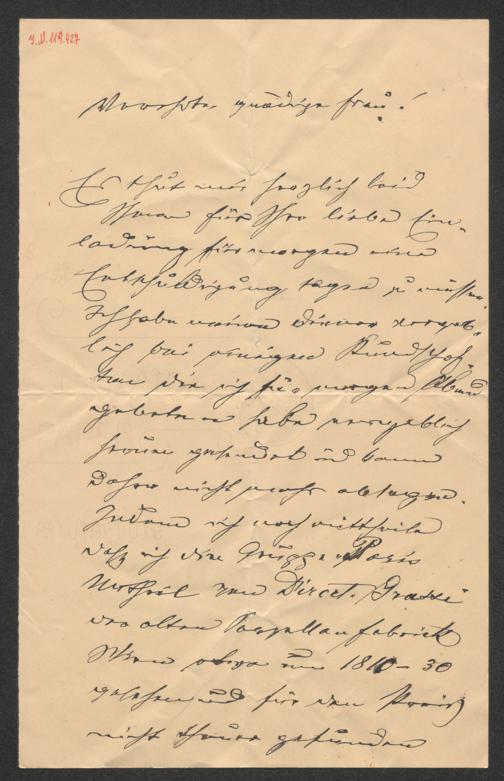 I.N. 119.427
Verehrte gnädige Frau!
Es thut mir herzlich leid
Ihnen für Ihre liebe Ein-
ladung für morgen eine
Entschuldigung sagen zu müssen.
Ich habe meinen Diener vergeb-
lich bei einigen
die ich für morgen Abend
gebeten habe vergeblich
herum gesendet und kann
daher nicht mehr absagen.
Indem ich noch mittheile
daß ich die Gruppe Paris
Urtheil von Direct.
der alten Porzellanfabrick
Wien etwa um 1810–30
gesehen und für den Preis
nicht theuer gefunden